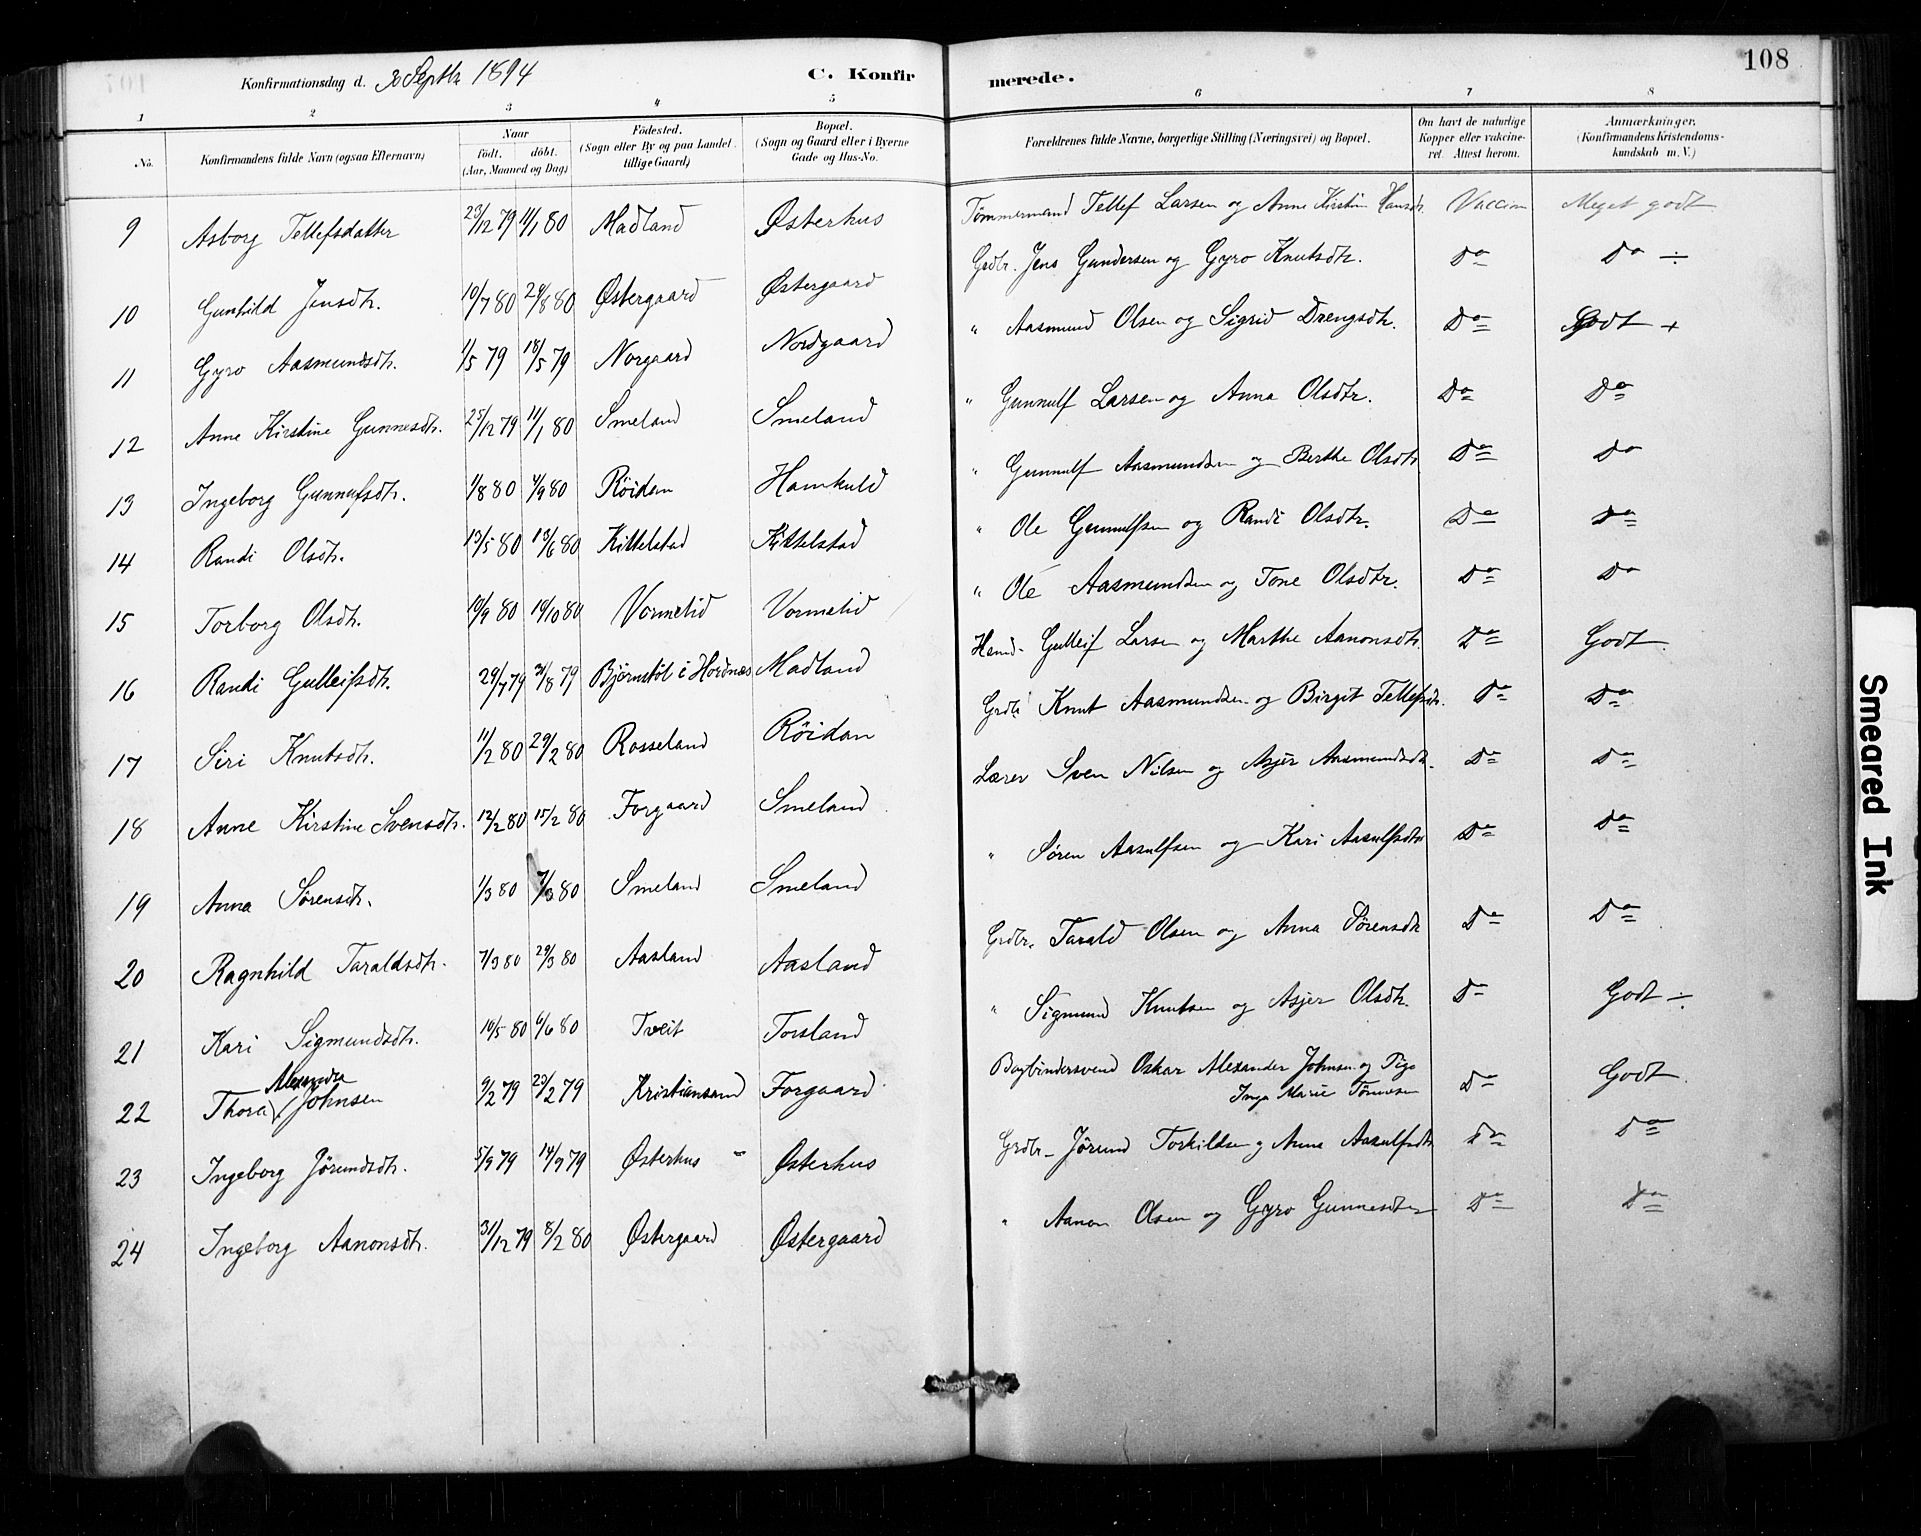 108
Konfirmationsdag d. 30 Septbr 1894
C. Konfirmerede.
1 2 3 4 5 6 7 8
No. Konfirmandens fulde Navn (ogsaa Efternavn) Naar född. döbt. (Aar, Maaned og Dag) Födested. (Sogn eller By og paa Landet tillige Gaard) Bopæl. (Sogn og Gaard eller i Byerne Gade og Hus-No. Forældrenes fulde Navne, borgerlige Stilling (Næringsvei) og Bopæl. Om havt de naturlige Kopper eller vakcineret. Attest herom. Anmærkninger. (Konfirmandens Kristendomskundskab m. V.)
9 Asborg Tellefsdatter 23/12 79 11/1 80 Madland Østerhus Tømmermand Tellef Larsen og Anne Kirstin Hansdr. Vaccin Meget godt
10 Gunhild Jensdtr. 10/7 80 29/8 80 Østergaard Østergaard Grdbr. Jens Gundersen og Gyro Knutsdtr. Do Do ÷
11 Gyro Aasmundsdtr. 1/5 79 18/5 79 Norgaard Nordgaard " Aasmund Olsen og Sigrid Drengsdtr. Do Godt +
12 Anne Kirstine Gunnesdtr. 25/12 79 11/1 80 Smeland Smeland " Gunnulf Larsen og Anna Olsdtr. Do Do
13 Ingeborg Gunnufsdtr. 1/8 80 /9 80 Røidan Hamkuld " Gunnulf Aasmundsen og Berthe Olsdtr Do Do
14 Randi Olsdtr. 13/5 80 13/6 80 Kittelstad Kittelstad " Ole Gunnulfsen og Randi Olsdtr. Do Do
15 Torborg Olsdtr. 10/9 80 10/10 80 Vormelid Vormelid " Ole Aasmundsen og Tone Olsdtr. Do Do
16 Randi Gulleifsdtr. 29/7 79 31/8 79 Bjørnstøl i Hordnæs Madland Hamd- Gulleif Larsen og Marthe Aanonsdtr. Do Godt.
17 Siri Knutsdtr. 11/2 80 29/2 80 Rosseland Røidan Grdbr Knut Aasmundsen og Birgit Tellefsdr. Do Do
18 Anne Kirstine Svensdtr. 12/2 80 15/2 80 Forgaard Smeland Lærer Sven Nilsen og Asjer Aasmundsdtr. Do Do
19 Anna Sørensdtr. 1/3 80 7/3 80 Smeland Smeland " Søren Aasulfsen og Kari Aasulfsdtr Do Do
20 Ragnhild Taraldsdtr. 7/3 80 29/3 80 Aasland Aasland Grdbr. Tarald Olsen og Anna Sørensdtr Do Do
21 Kari Sigmundsdtr. 10/5 80 6/6 80 Tveit Torsland " Sigmund Knutsen og Asjer Olsdtr. Do Godt ÷
22 Thora Alexandra Johnsen 9/2 79 23/2 79 Kristianssand Forgaard Bogbindersvend Oskar Alexander Johnsen og Pige Inga Marie Tønnesen Do Godt.
23 Ingeborg Jørundsdtr. 5/9 79 14/9 79 Østerhus Østerhus Grdbr- Jørund Torkildsen og Anna Aasulfsdtr Do Do
24 Ingeborg Aanonsdtr. 31/12 79 8/2 80 Østergaard Østergaard " Aanon Olsen og Gyro Gunnesdtr Do Do
Smeared Ink